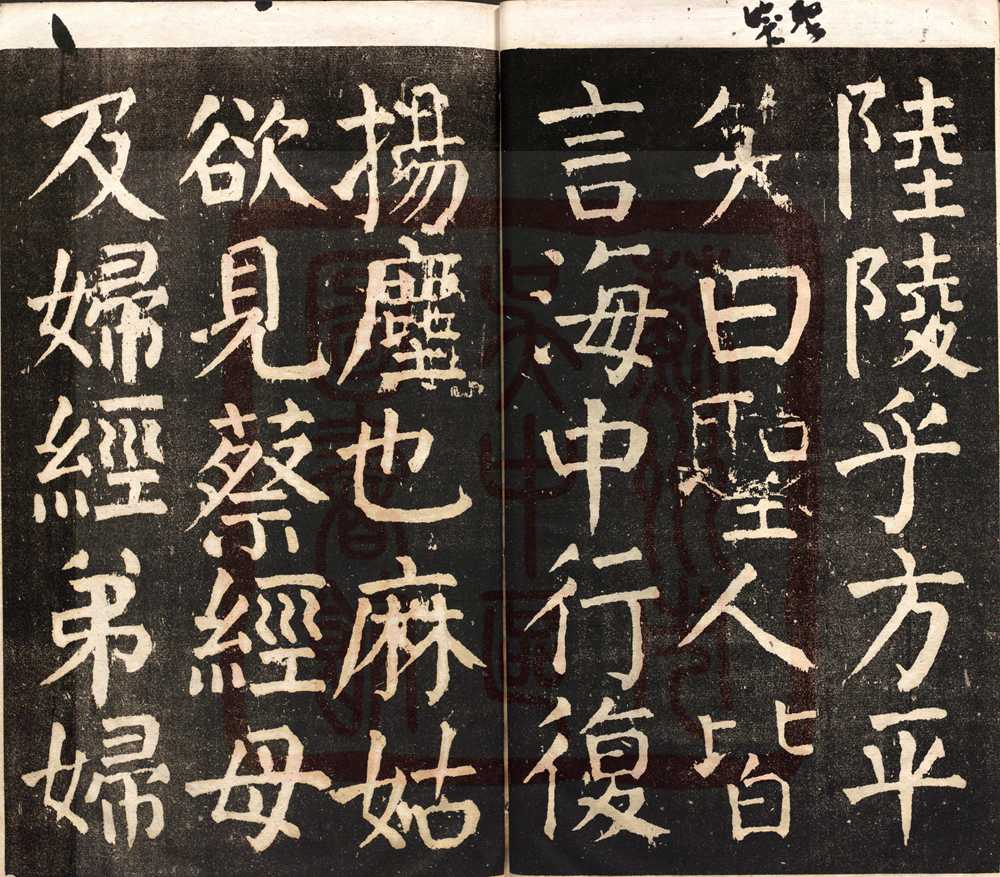 陸陵乎方平
笑曰聖人皆
言海中行復
揚塵也麻姑
欲見蔡經母
及婦經弟婦